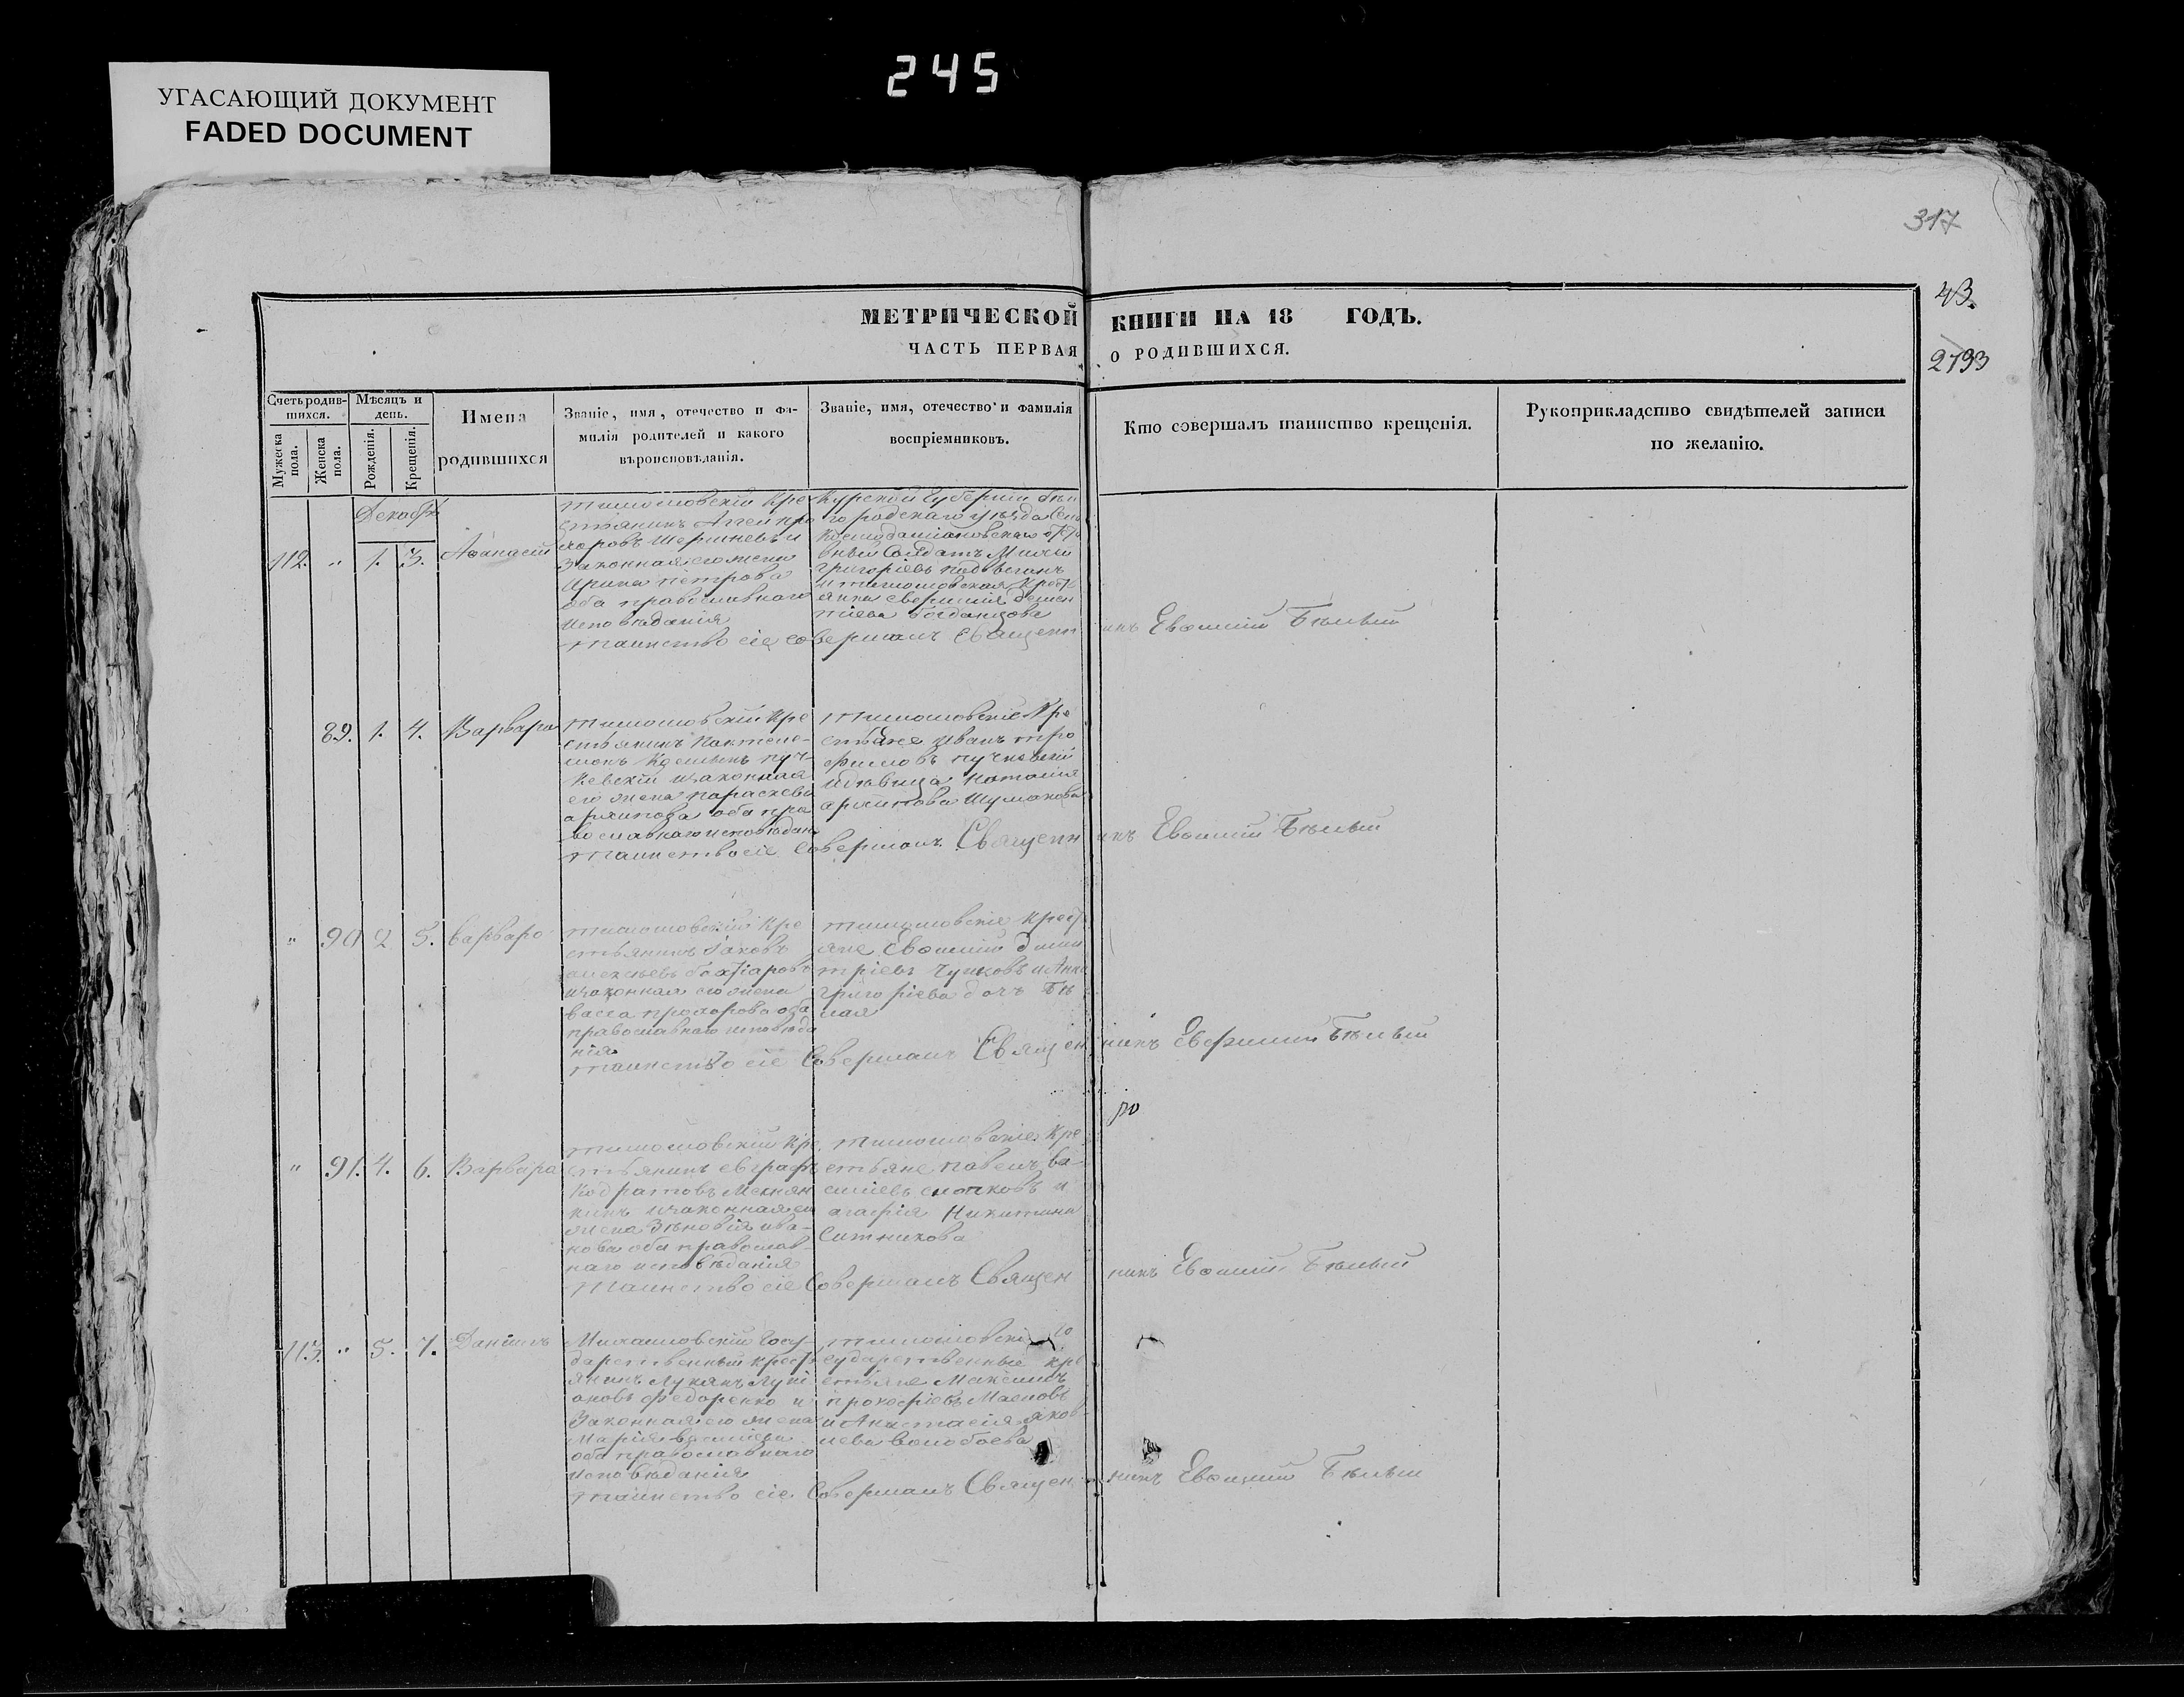 245
УГАСАЮЩИЙ ДОКУМЕНТ
FADED DOCUMENT
317
43.
2793
МЕТРИЧЕСКОЙ КНИГИ НА 18 ГОДЪ.
ЧАСТЬ ПЕРВАЯ О РОДИВШИХСЯ.
Счетъ родив-
шихся.
Мужеска пола.
Женска пола.
Мѣсяцъ и
день.
Рожденія.
Крещенія.
Имена
родившихся
Званіе, имя, отечество и фа-
милія родителей и какого
вѣроисповѣданія.
Званіе, имя, отечество и фамилія
воспріемниковъ.
Кто совершалъ таинство крещенія.
Рукоприкладство свидѣтелей записи
по желанію.
Декабрь
112. " 1. 3. Аѳанасій
Тимошовскій Кре
стьянинъ Аггей про
хоровъ и
Законная его жена
Ирина петрова
оба православнаго
исповѣданія
Курской Губерніи бѣл
городскаго уѣзда
Солдатъ
григорієвъ
и тимошовская крест
янка Евфимія демен
тієва богданцова
таинство сіе совершалъ Священникъ Евѳимій Бѣлый
89. 1. 4. Варвара
Тимошовскій Кре
стьянинъ Пантеле-
монъ пуч-
ковскій и законная
его жена параскева
архипова оба пра
вославнаго исповѣдан
Тимошовскіе Кре
стьяне Иванъ тро
фимовъ пучковскій
и дѣвица наталія
архипова Шумакова
таинство сіе Совершалъ Священникъ Евѳимій Бѣлый
" 90 2 5. варвара
тимошовскій Кре
стьянинъ Іаковъ
алексѣевъ
и законная его жена
васса прохорова оба
православнаго исповѣда
нія
тимошовскіе Крест
яне Евѳимій дими
трієвъ Чупковъ и Анна
григорієва дочь Бѣ
лая
таинство сіе Совершалъ Священникъ Евфимій Бѣлый
" 91. 4. 6. Варвара
тимошовскій Кре
стьянинъ евграфъ
Кодратовъ
и законная его
жена Зѣновія ива-
нова оба православ-
наго исповѣданія
Тимошовскіе Кре
стьяне павелъ ва-
силієвъ сиопковъ и
агафія Никитина
Ситникова
Таинство сіе Совершалъ Священникъ Евѳимій Бѣлый
113. " 5. 7. Даніилъ
Михаиловскій Госу-
дарственный крест
янинъ Лукянъ Лукі
ановъ Федоренко и
Законная его жена
Марія
оба православнаго
исповѣданія
тимошовскіе го
сударственные кре
стьяне Максимъ
прокофієвъ Масловъ
и Анастасія яков-
лева Волобоева
таинство сіе Совершалъ Священникъ Евѳимій Бѣлый